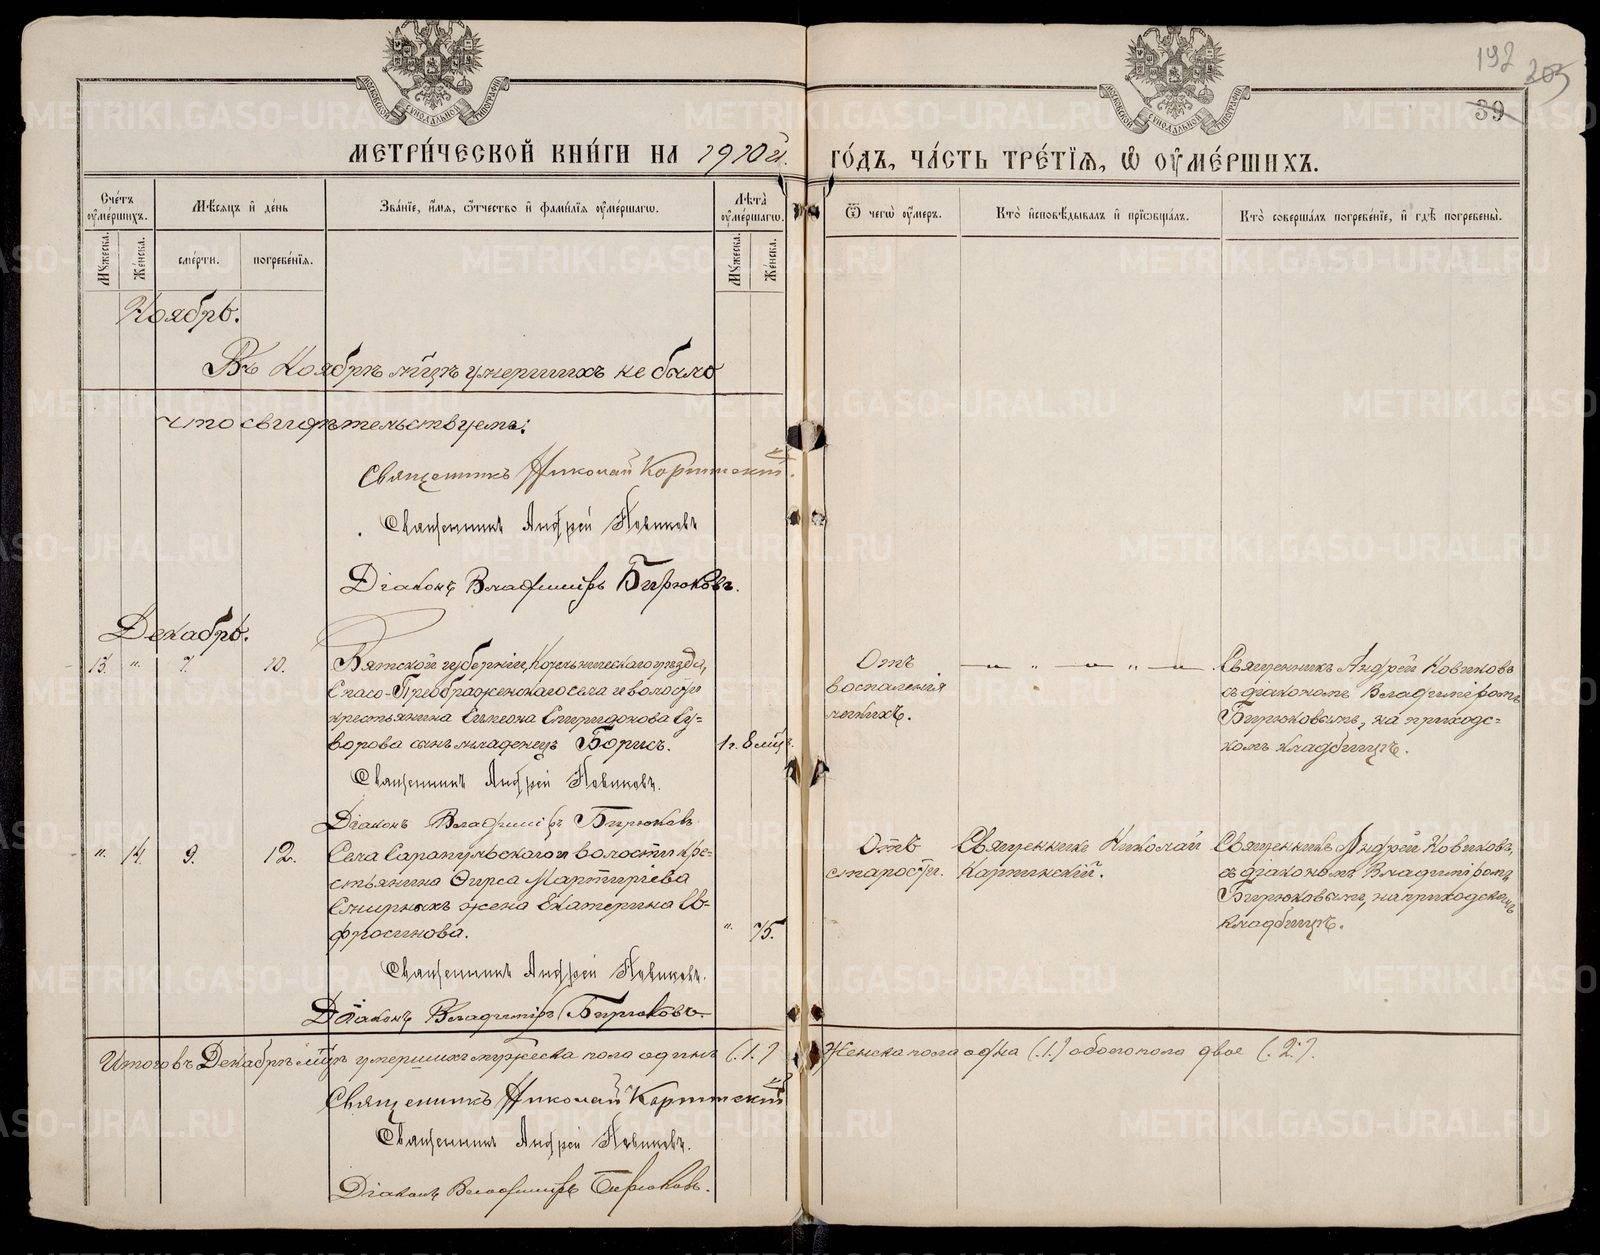 192 203
39
МЕТРИЧЕСКОЙ КНИГИ НА 1910й.
ГОДЪ, ЧАСТЬ ТРЕТІЯ, Ѡ ОУМЕРШИХЪ.
Счетъ оумершихъ.
Мужеска.
Женска.
Мѣсяцъ и день
смерти.
погребенія.
Званіе, имя, ѿчество и фамилія оумершагѡ.
Лѣта оумершагѡ.
Мужеска.
Женска.
Ѿ чегѡ оумеръ.
Кто исповѣдывалъ и пріѡбщалъ.
Кто совершалъ погребеніе, и гдѣ погребены.
Ноябрь.
Въ Ноябрѣ мцѣ умершихъ не было
что свидѣтельствуемъ:
Священникъ Николай
Священникъ Андрей Новиковъ
Діаконъ Владиміръ Бирюковъ.
Декабрь.
13. " 7. 10.
Вятской губерніи, Котельническаго уѣзда,
Спасо-Преображенскаго села и волости
крестьянина Симеона Спиридонова Су-
ворова сынъ младенецъ Борисъ.
1 г. 8 мцъ.
Отъ
воспаленія
легкихъ.
Священникъ Андрей Новиковъ
съ діакономъ Владиміромъ
Бирюковымъ, на приходс-
комъ кладбищѣ.
Священникъ Андрей Новиковъ.
Діаконъ Владиміръ Бирюковъ
" 14. 9. 12.
Села Сарапульскаго и волости кре-
стьянина Ѳирса Мартирьева
Смирныхъ жена Екатерина Ев-
фросинова.
" 75.
Отъ
старости.
Священникъ Николай
Священникъ Андрей Новиковъ,
съ діакономъ Владиміромъ
Бирюковымъ, на приходскомъ
кладбищѣ.
Священникъ Андрей Новиковъ.
Діаконъ Владиміръ Бирюковъ.
Итого въ Декабрѣ мцѣ умершихъ мужеска пола одинъ (.1.) Женска пола одна (.1.) обоего пола двое (.2.).
Священникъ Николай
Священникъ Андрей Новиковъ.
Діаконъ Владиміръ Бирюковъ.
METRIKI.GASO-URAL.RU